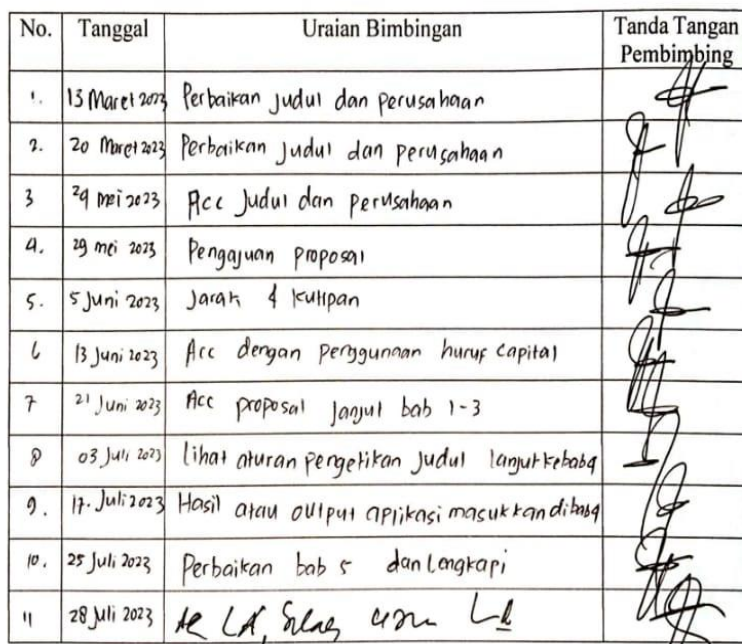 No. Tanggal Uraian Bimbingan Tanda Tangan
Pembimbing
1. 13 Maret 2023 Perbaikan Judul dan perusahaan
2. 20 Maret 2023 Perbaikan Judul dan perusahaan
3 29 mei 2023 Acc Judul dan perusahaan
4. 29 mei 2023 Pengajuan proposal
5. 5 Juni 2023 Jarak & kutipan
6 13 Juni 2023 Acc dengan penggunaan huruf capital
7 21 Juni 2023 Acc proposal lanjut bab 1-3
8 03 Juli 2023 lihat aturan pengetikan Judul lanjut kebab4
9. 17. Juli 2023 Hasil atau output aplikasi masukkan dibab4
10. 25 Juli 2023 Perbaikan bab 5 dan lengkapi
11 28 Juli 2023